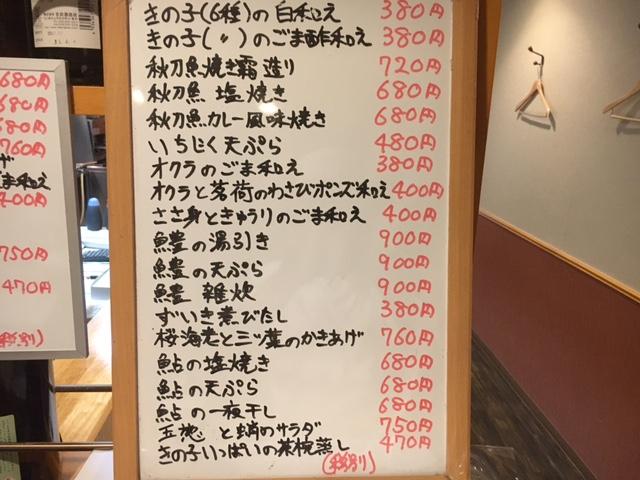 680円
680円
680円
760円
ま和え
400円
750円
470円
税別)
きの子(6種)の白和え 380円
きの子(〃)のごま酢和え 380円
秋刀魚焼き霜造り 720円
秋刀魚 塩焼き 680円
秋刀魚カレー風味焼き 680円
いちじく天ぷら 480円
オクラのごま和え 380円
オクラと茗荷のわさびポンズ和え 400円
ささ身ときゅうりのごま和え 400円
鱧の湯引き 900円
鱧の天ぷら 900円
鱧 雑炊 900円
ずいき煮びたし 380円
桜海老と三ッ葉のかきあげ 760円
鮎の塩焼き 680円
鮎の天ぷら 680円
鮎の一夜干し 680円
と蛸のサラダ 750円
きの子いっぱいの茶椀蒸し 470円
(税別)